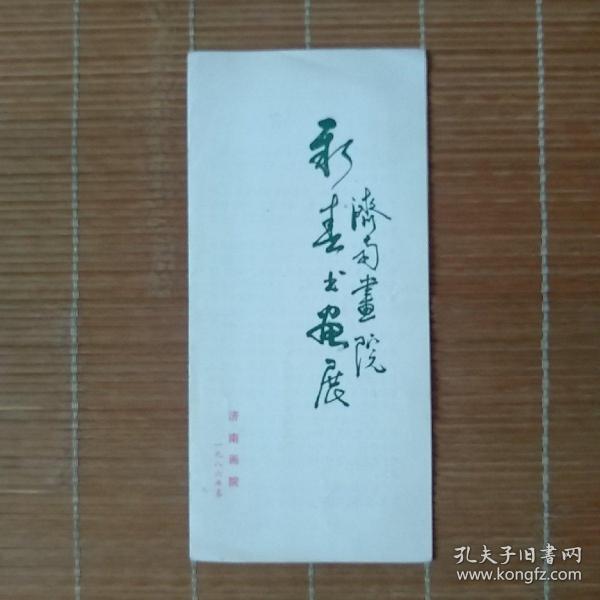 濟南畫院
新春书画展
济南画院
一九八六年春
孔夫子旧書网
www.kongfz.com